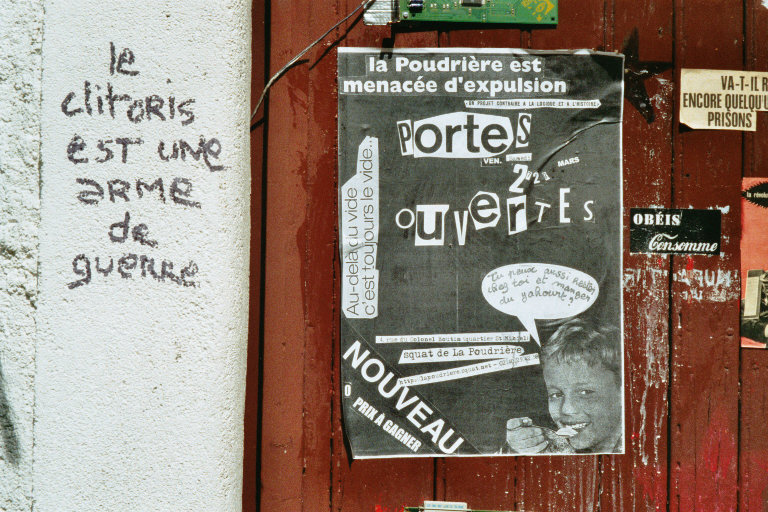 le
clitoris
est une
arme
de
guerre
la Poudrière est
menacée d'expulsion
UN PROJET CONTRAIRE A LA LOGIQUE ET A L'HISTOIRE
PORtES
VEN.
MARS
OUVERTES
Au-delà du vide
c'est toujours le vide...
tu peux aussi rester
chez toi et manger
du yahourt?
4 rue du Colonel Boutin quartier St
squat de La Poudrière
NOUVEAU
0 PRIX A GAGNER
VA-T-IL R
ENCORE QUELQU'U
PRISONS
OBÉIS
Consomme
la révolu